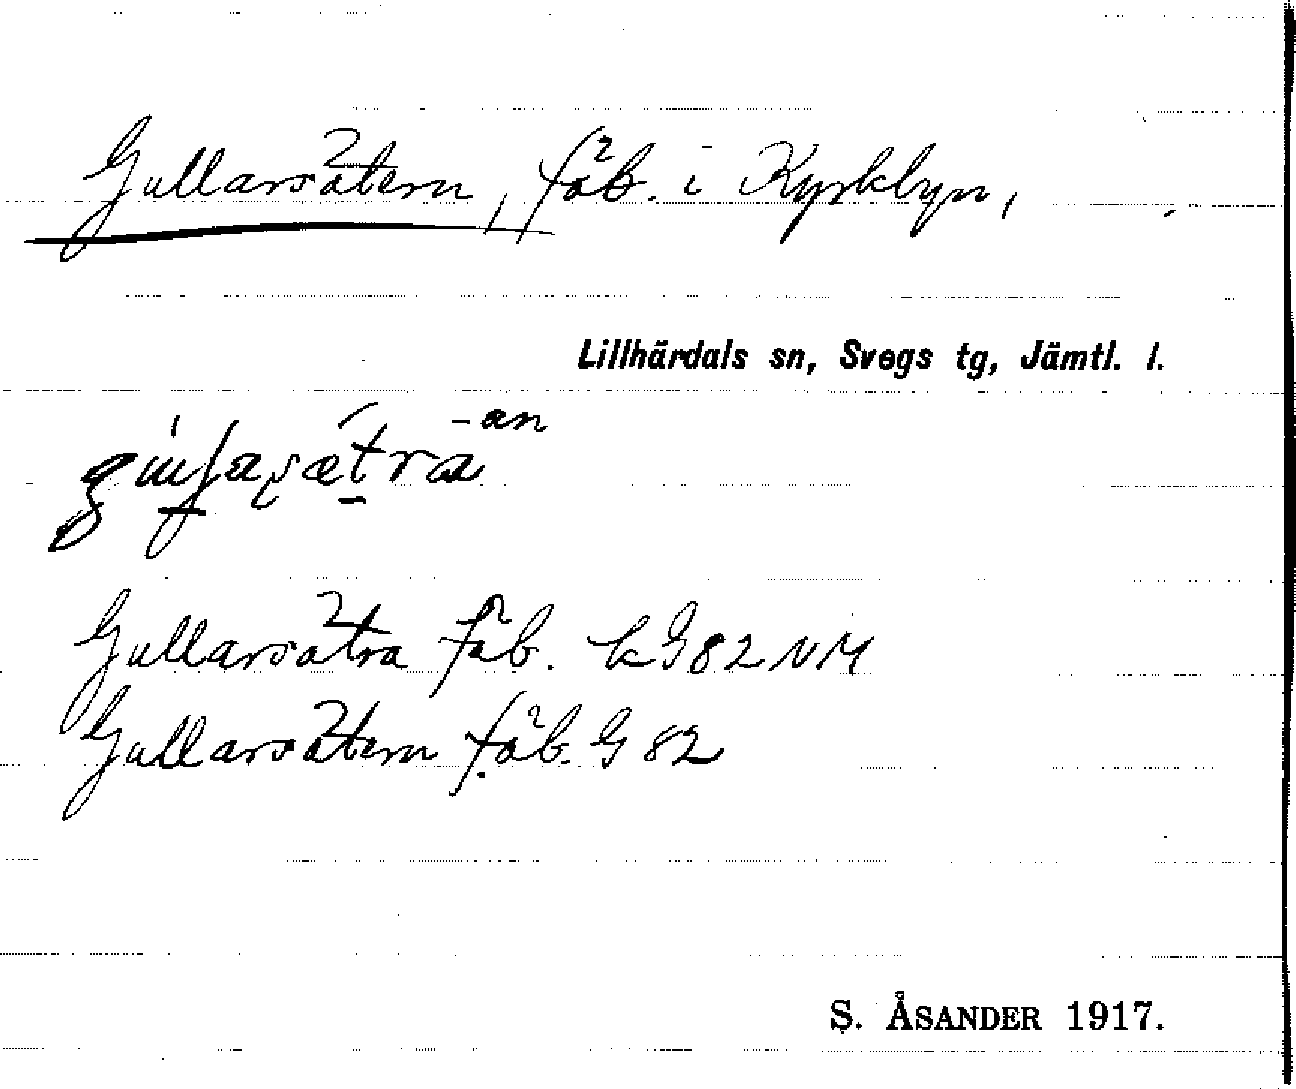 Gullarsätern, fäb. i Kyrkbyn,
Lillhärdals sn, Svegs tg, Jämtl. l.
Gullarsätra fäb. kG82NM
Gullarsätern fäb. G82
S. ÅSANDER 1917.